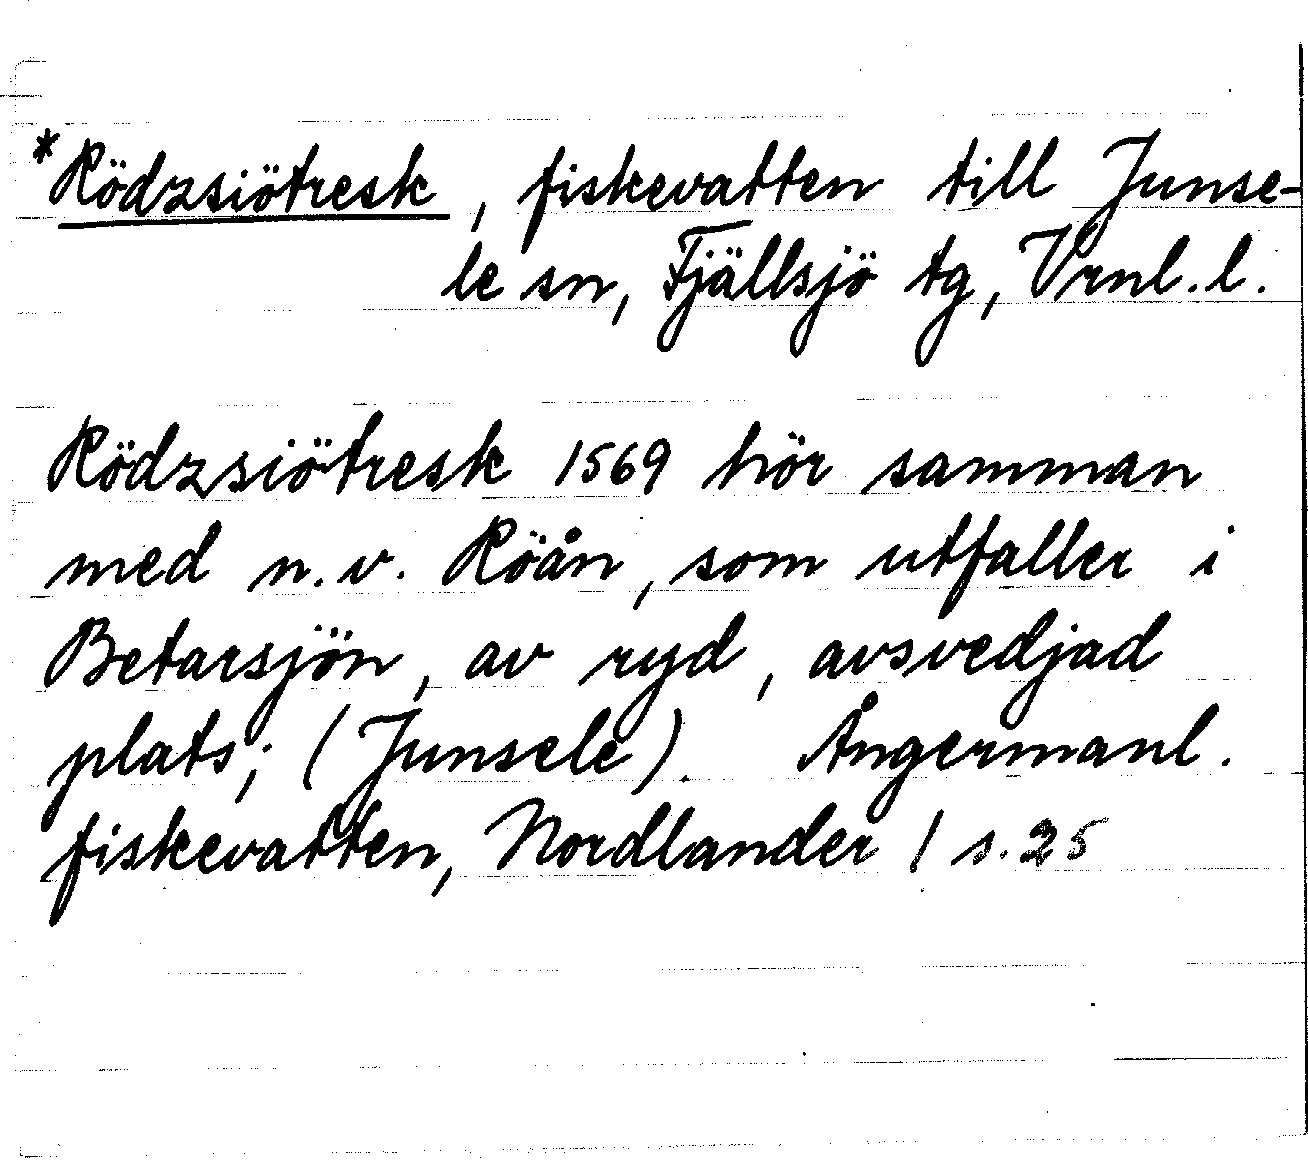 *Rödzsiötresk, fiskevatten till Junse-
le sn, Fjällsjö tg, Vrnl. l.
Rödzsiötresk 1569 hör samman
med n.v. Röån, som utfaller i
Betarsjön, av ryd, avsvedjad
plats; (Junsele). Ångermanl.
fiskevatten, Nordlander 1 s. 25